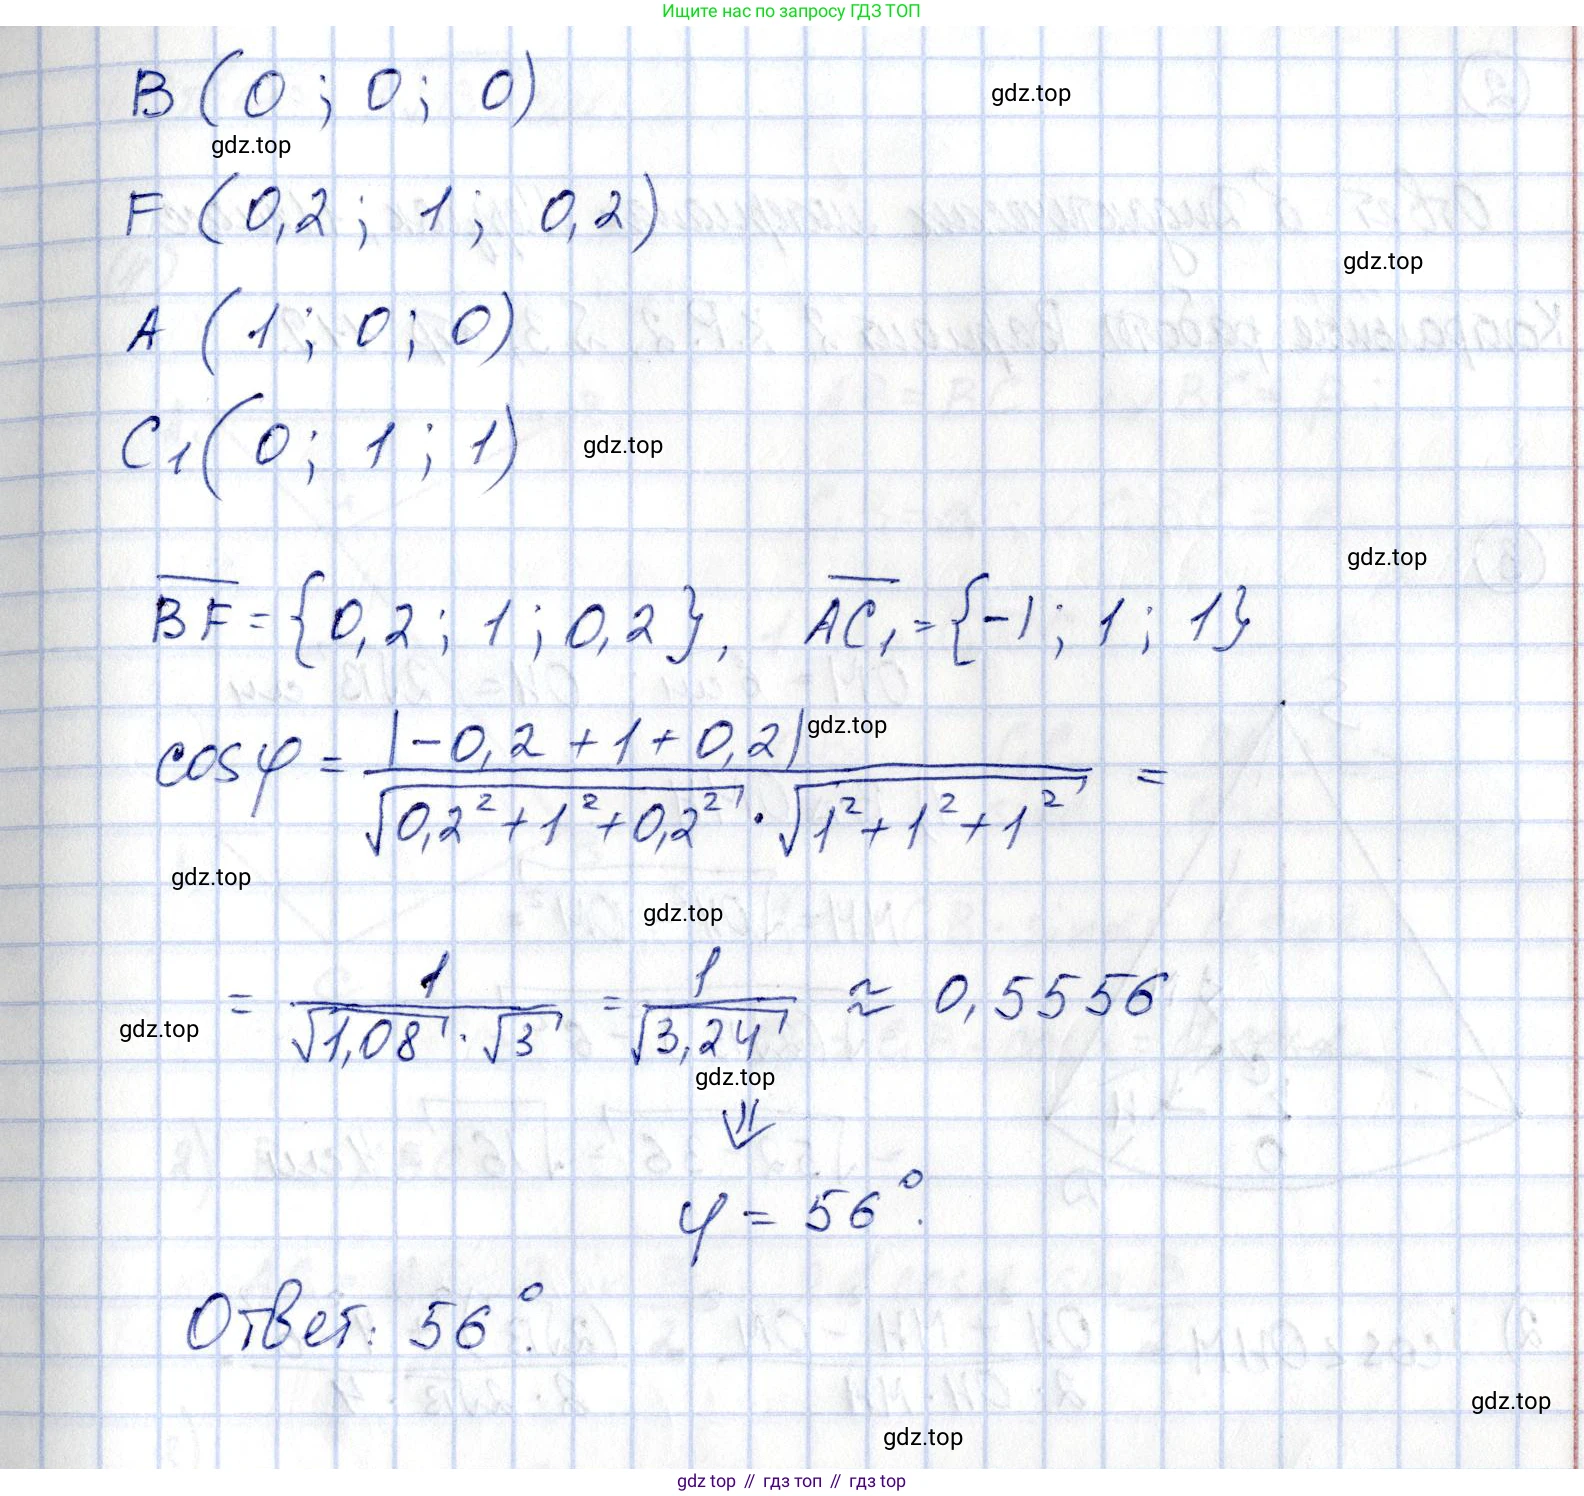 Ищите нас по запросу ГДЗ ТОП
B (0 ; 0 ; 0)
gdz.top
gdz.top
F (0,2 ; 1 ; 0,2)
gdz.top
A (1 ; 0 ; 0)
C₁ (0 ; 1 ; 1)
gdz.top
gdz.top
BF = {0,2 ; 1 ; 0,2}, AC₁ = {-1 ; 1 ; 1}
cos φ = |-0,2 + 1 + 0,2| / (√(0,2² + 1² + 0,2²) · √(1² + 1² + 1²)) =
gdz.top
gdz.top
gdz.top
= 1 / (√1,08 · √3) = 1 / √3,24 ≈ 0,5556
gdz.top
gdz.top
⇓
φ = 56°.
Ответ: 56°.
gdz.top
gdz.top
gdz top // гдз топ // gdz top